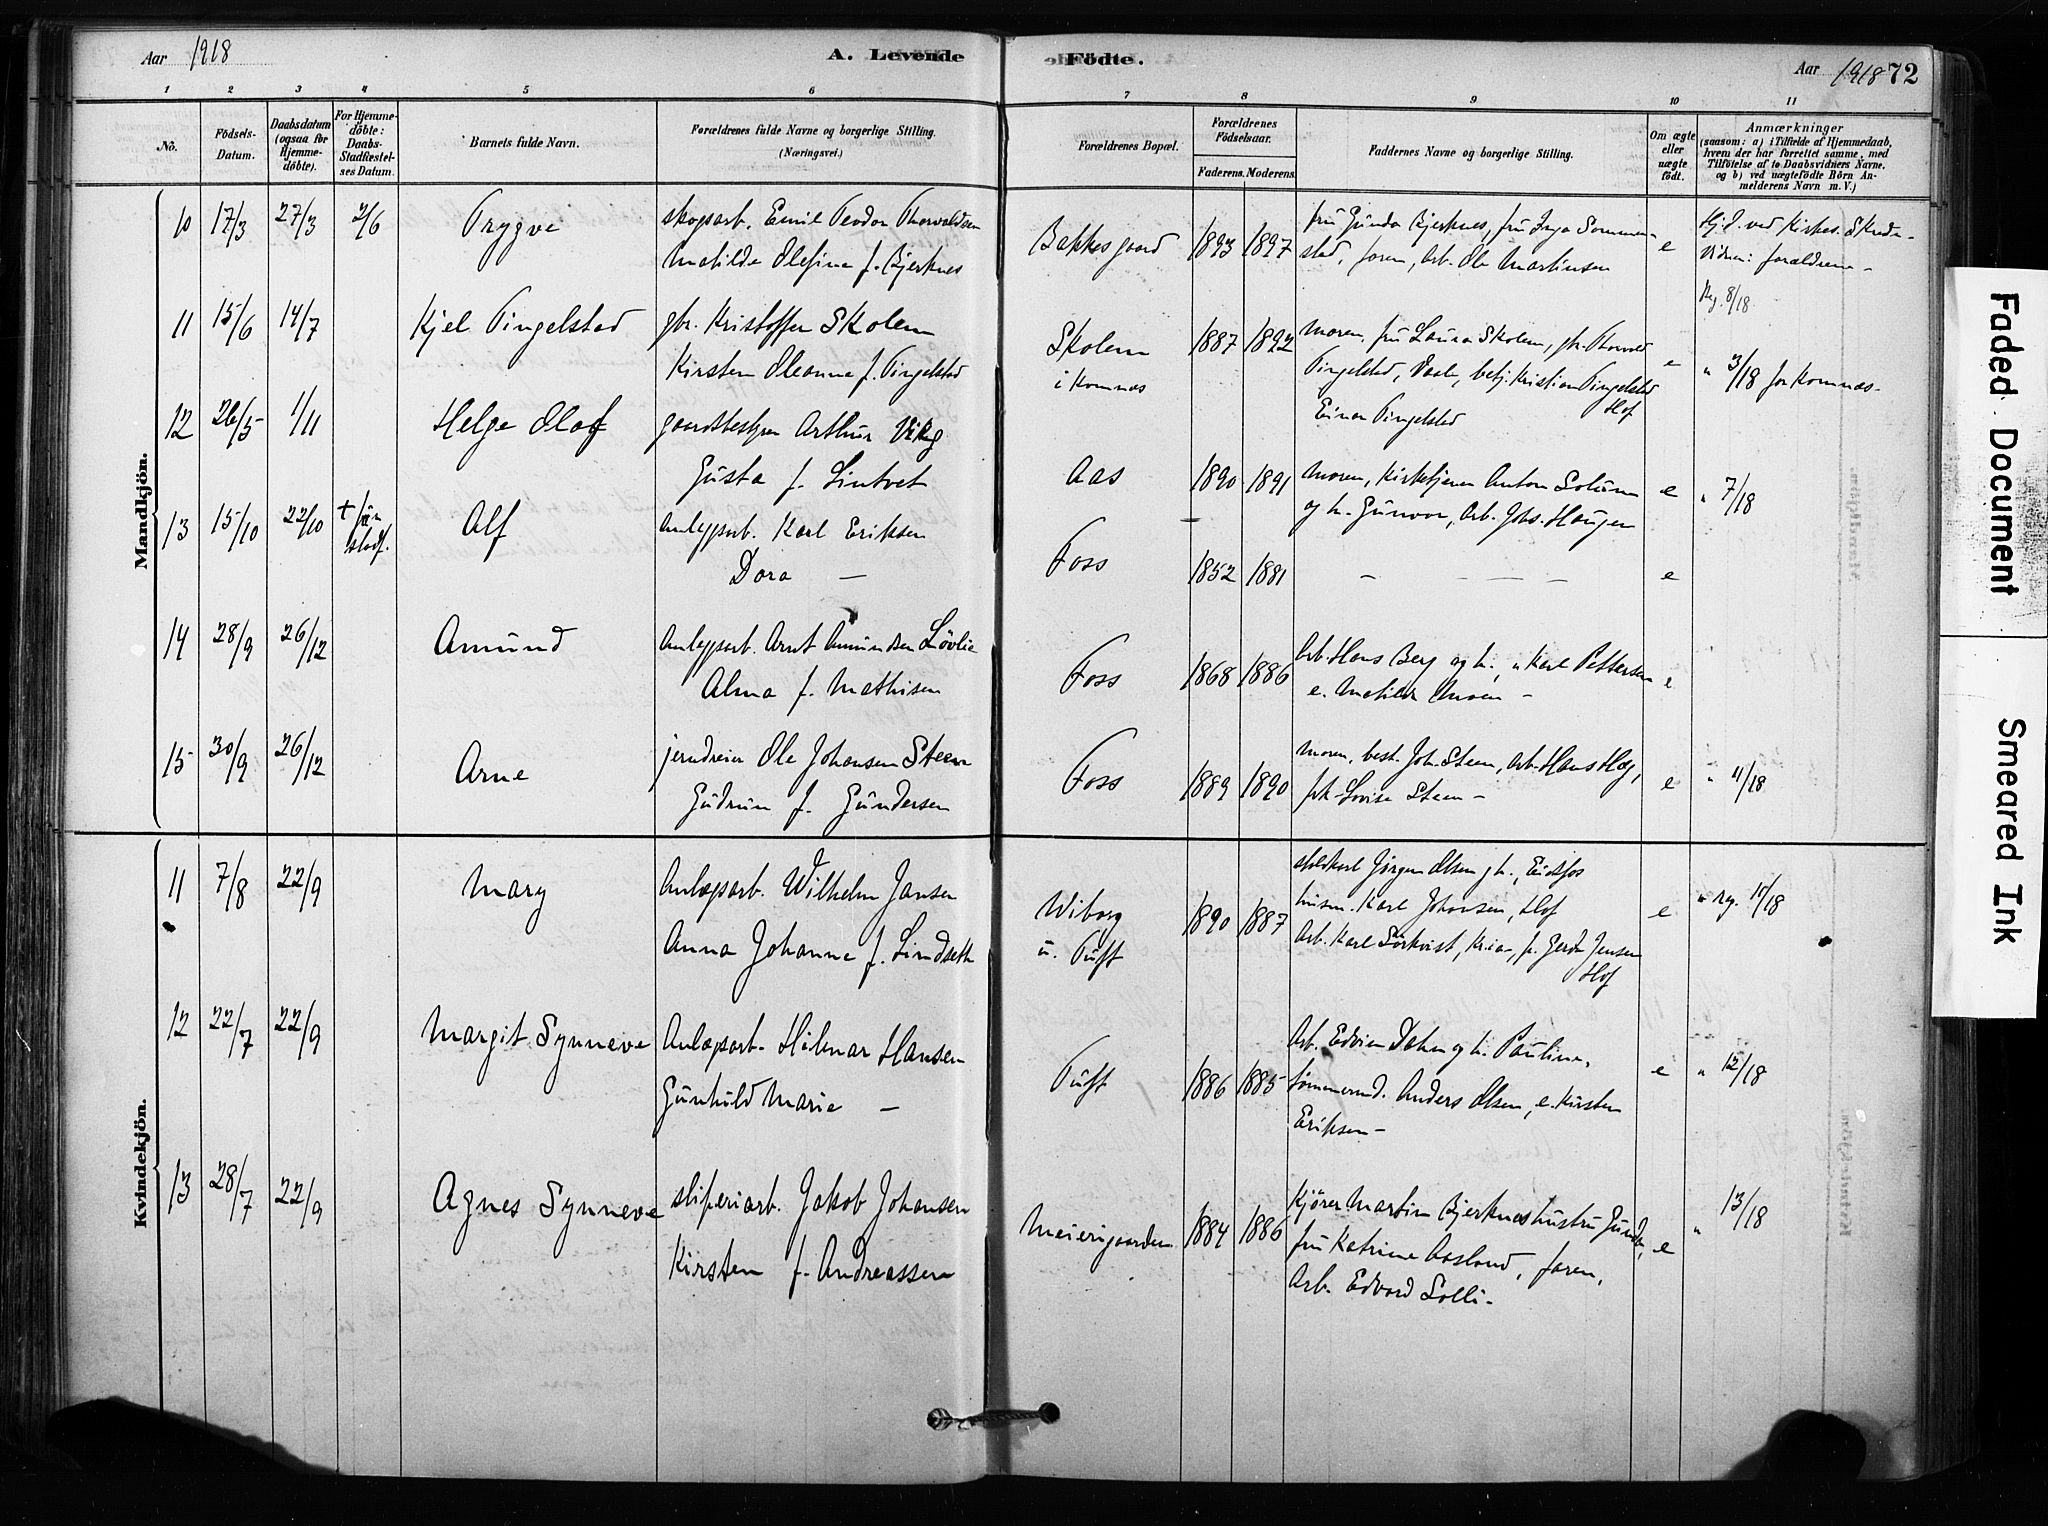 Aar 1918
A. Levende
Födte.
Aar 1918 72
1 2 3 4 5 6 7 8 9 10 11
No.
Födsels-
Datum.
Daabsdatum
(ogsaa for
Hjemme-
döbte).
For Hjemme-
döbte:
Daabs-
Stadfæstel-
ses Datum.
Barnets fulde Navn.
Forældrenes fulde Navne og borgerlige Stilling.
(Næringsvei.)
Forældrenes Bopæl.
Forældrenes
Födselsaar.
Faderens. Moderens.
Faddernes Navne og borgerlige Stilling.
Om ægte
eller
uægte
födt.
Anmærkninger
(saasom: a) i Tilfælde af Hjemmedaab,
hvem der har forrettet samme, med
Tilföielse af to Daabsvidners Navne.
og b) ved uægtefödte Börn An-
melderens Navn m. V.)
Mandkjön.
10 17/3 27/3 2/6 Trygve skogsarb. Emil Teodor Thorvaldsen
Matilde Olefine f. Bjerknes
Bakkesgaard 1893 1897 fru Gunda Bjerknes, fru Inga Sommer-
stad, faren, arb. Ole Martinsen
e
Hj.d. ved Kirkes. Skred-
Vidner: forældrene -
Reg. 8/18
11 15/6 14/7 Kjel Tingelstad gbr. Kristoffer Skolem
Kirsten Oleanna f. Tingelstad
Skolem
i Komnæs
1887 1892 moren, fru Laura Skolem, gbr. Thorvald
Tingelstad, betj. Kristian Tingelstad
Hof
Einar Tingelstad
e " 3/18 for Komnæs-
12 26/5 1/11 Helge Olaf gaardbestyrer Arthur
Gusta f. Lintvet
Aas 1890 1891 moren, Kirketjener Anton Solum
og h. Gunvor, arb. Johs. Haugen
e " 7/18
13 15/10 22/10 + før
stadf. Alf Anlegsarb. Karl Eriksen
Dora —
Foss 1852 1881 - - - - e
14 28/9 26/12 Amund Anlegsarb. Arnt Amundsen Lövlie
Alma f. Mathisen
Foss 1868 1886 Arb. Hans Berg og h., " Karl Pettersen
e. Matilde -
e
15 30/9 26/12 Arne jerndreier Ole Johansen Steen
Gudrun f. Gundersen
Foss 1889 1890 moren, best. Joh. Steen, arb. Hans
frk. Lovise Steen -
e " 4/18
Kvindekjön.
11 7/8 22/9 Mary Anlægsarb. Wilhelm Jansen
Anna Johanne f. Lindseth
Wiborg
u. Tuft
1890 1887 Jörgen Olsen og h., Eidsfos
husm. Karl Johansen, Hof
Arb. Karl Kr.ia, fr. Gerda Jensen
Hof
e " reg. 10/18
12 22/7 22/9 Margit Synneve Anlægsarb. Hilmar Hansen
Gunhild Marie —
Tuft 1886 1885 Arb. Edvin Dahm og h. Pauline,
tömmermd. Anders Olsen, e. Kirsten
Eriksen -
e " 12/18
13 28/7 22/9 Agnes Synneve sliperiarb. Jakob Johansen
Kirsten f. Andreassen
Meierigaarden 1884 1886 Kjörer Martin Bjerknes hustru Gunda,
fru Katrine Aasland, faren,
Arb. Edvard Solli -
e " 13/18
Faded Document
Smeared Ink